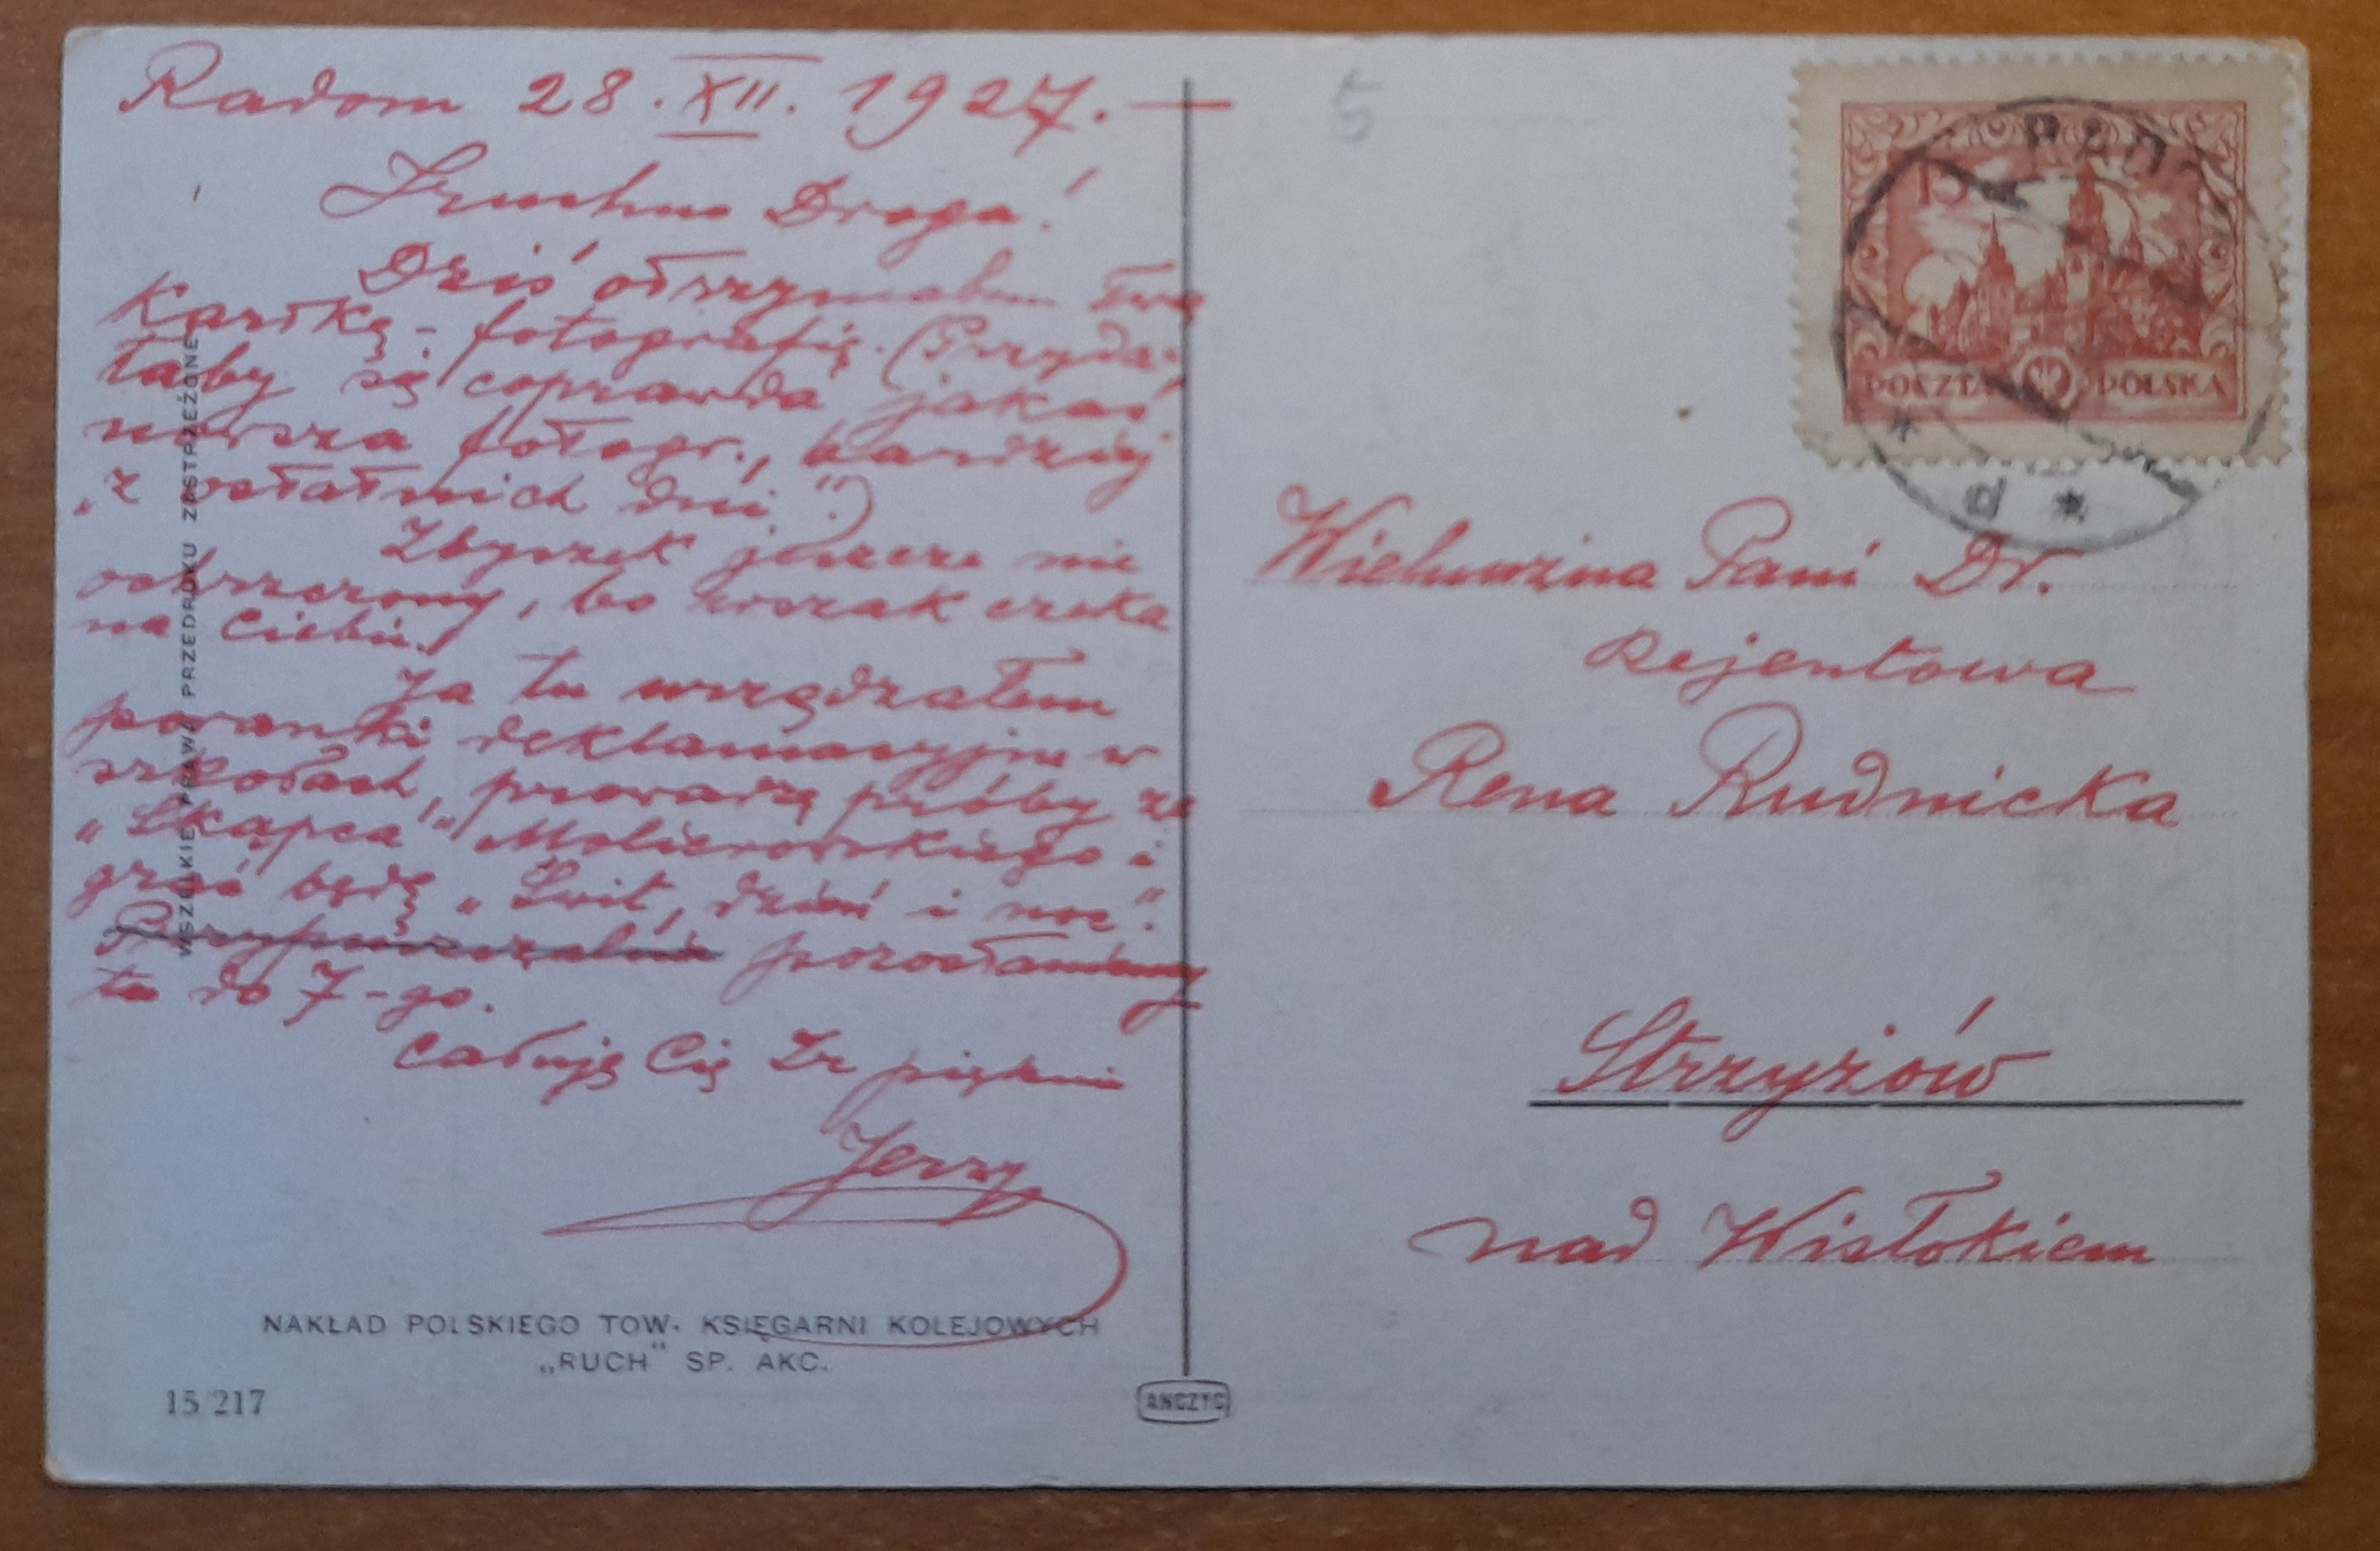 Radom 28. XII. 1927. —
Droga!
Dziś otrzymałem Twą
kartkę - fotografię. (Przyda-
łaby się coprawda jakaś
nowsza fotogr., bardziej
„z ostatnich dni".)
Zbyszek jeszcze nie
ochrzczony, bo wszak czeka
na Ciebie.
Ja tu urządzałem
poranki deklamacyjne w
szkołach, prowadzę próby ze
„Skąpca" Molierowskiego i
grać będę „Świt, dzień i noc".
Przypuszczalnie pozostaniemy
tu do 7-go.
Całuję Cię
Jerzy
NAKŁAD POLSKIEGO TOW. KSIĘGARNI KOLEJOWYCH
„RUCH" SP. AKC.
15/217
WSZELKIE PRAWA PRZEDRUKU ZASTRZEŻONE
ANCZYC
5
15
POCZTA POLSKA
RADOM
d
Wielmożna Pani Dr.
Rejentowa
Rena Rudnicka
Strzyżów
nad Wisłokiem